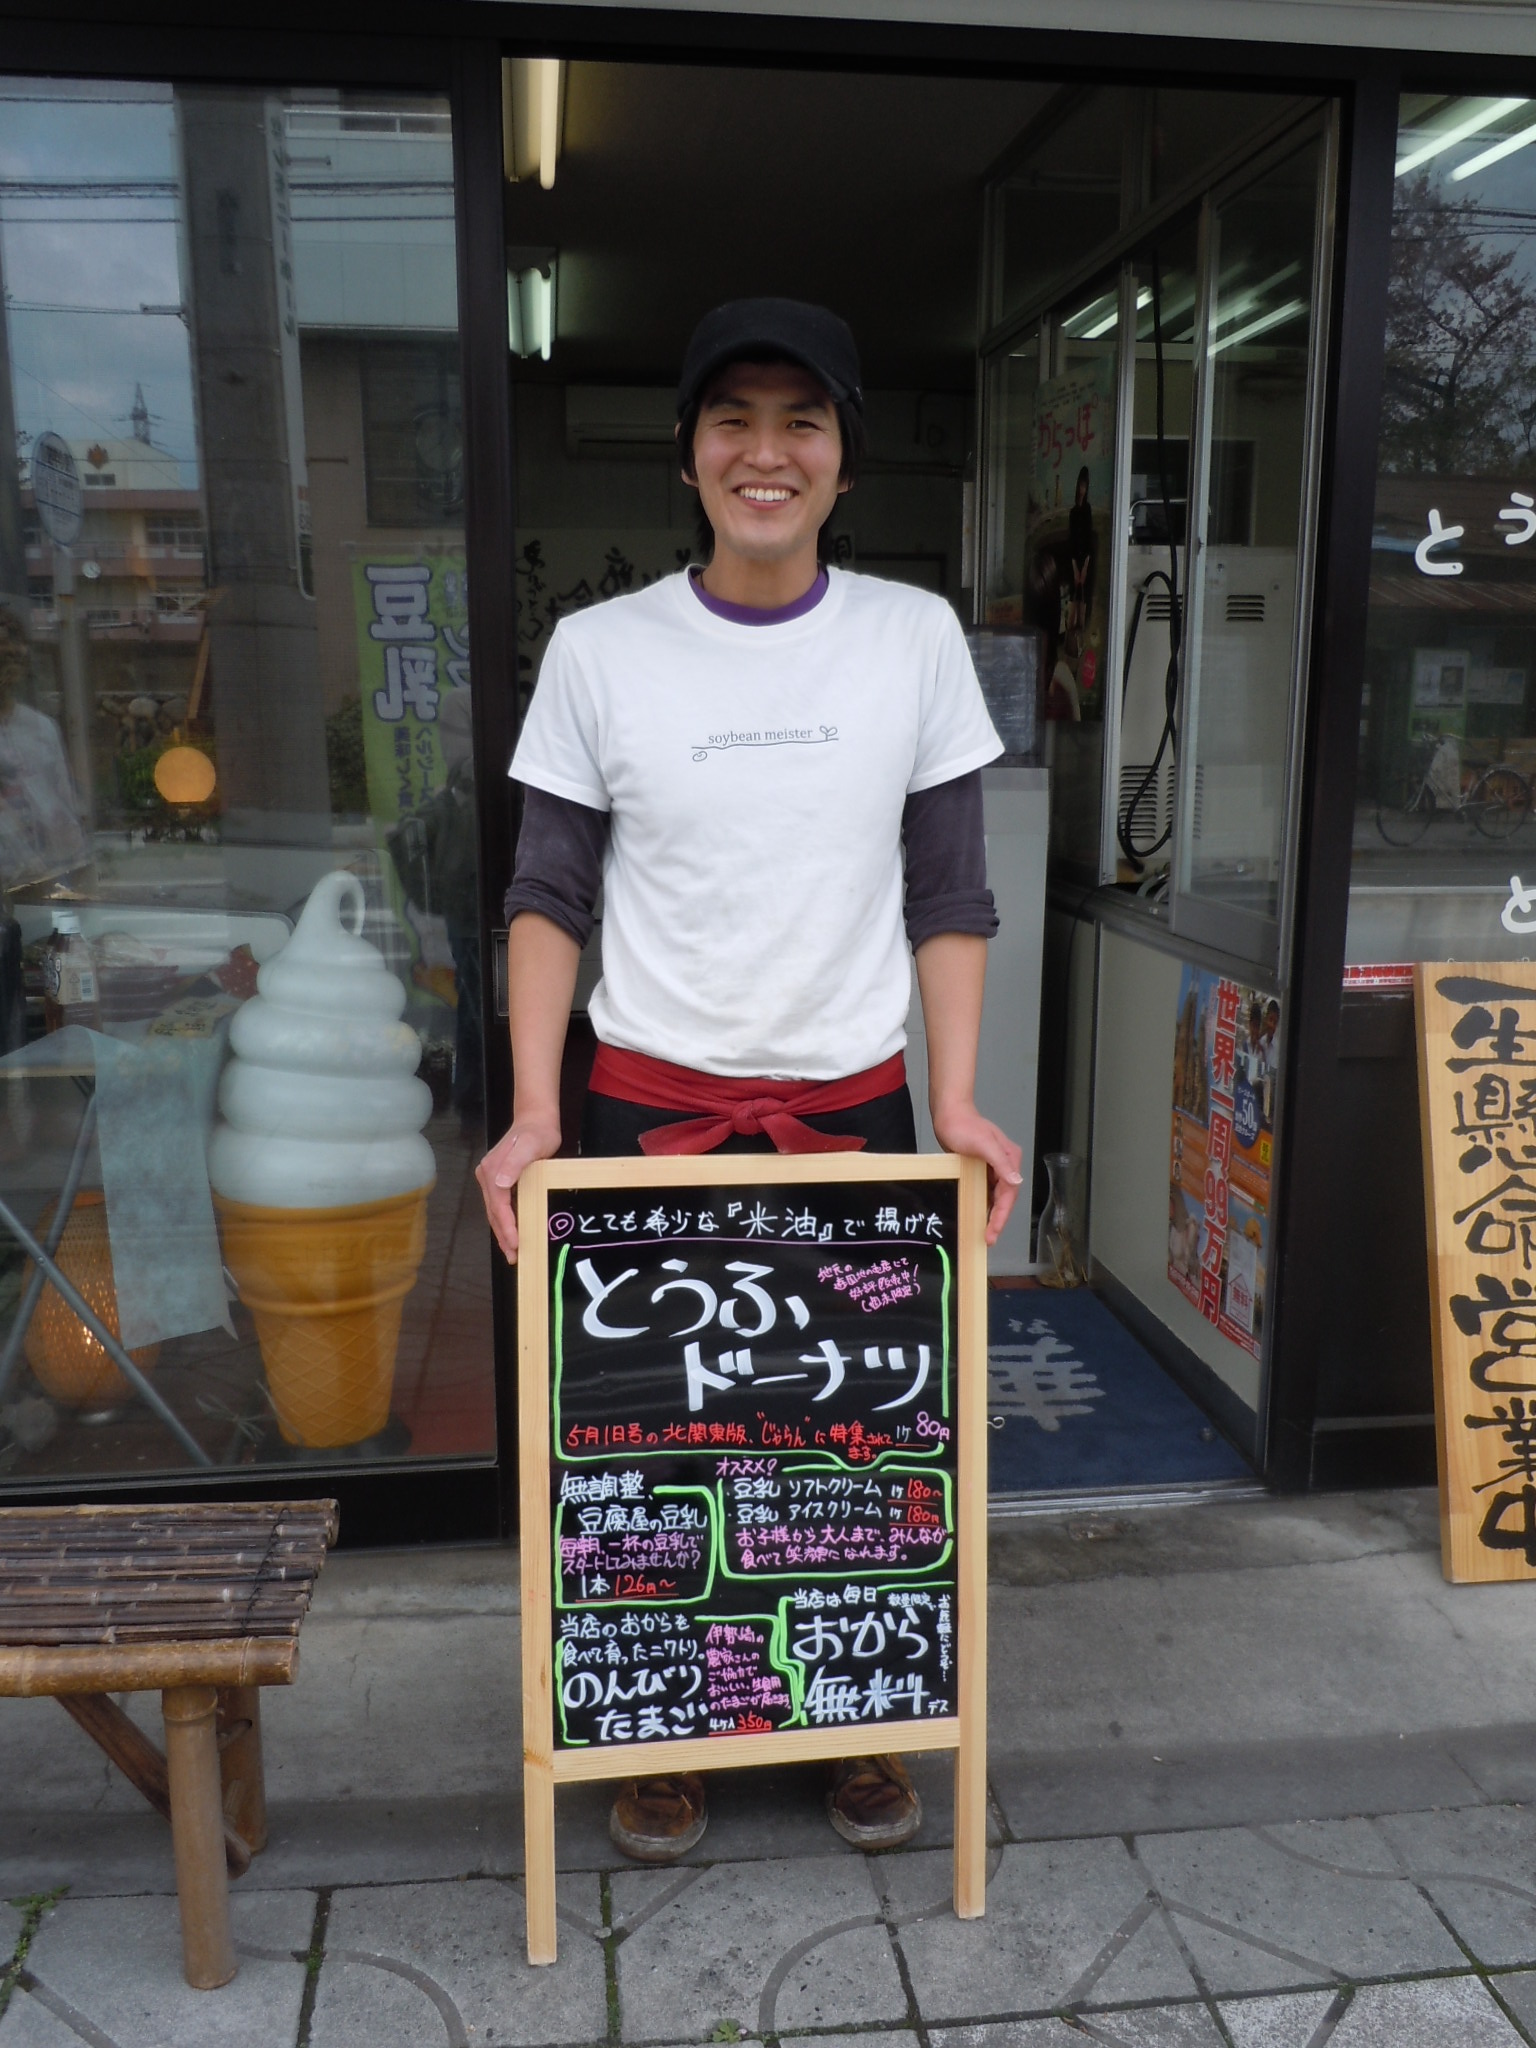 soybean meister
豆乳
からっぽ
と う
と
世界一周99万円
一生懸命営業中
◎とても希少な『米油』で揚げた
とうふ
ドーナツ
好評販売中!
(週末限定)
5月1日号の北関東版、"じゃらん"に特集されてます。
1ケ 80円
無調整、
豆腐屋の豆乳
毎朝、一杯の豆乳で
スタートしてみませんか?
1本 126円~
オススメ?
・豆乳 ソフトクリーム 1ケ 180~
・豆乳 アイスクリーム 1ケ 180円
お子様から大人まで、みんなが
食べて笑顔になれます。
当店のおからを
食べて育ったニワトリ。
のんびり
たまご
伊勢崎の
農家さんの
ご協力で
おいしい、生自用
のたまごが届きます。
4ケ入 350円
当店は毎日
数量限定で
おから
無料 デス
お気軽にどうぞ…